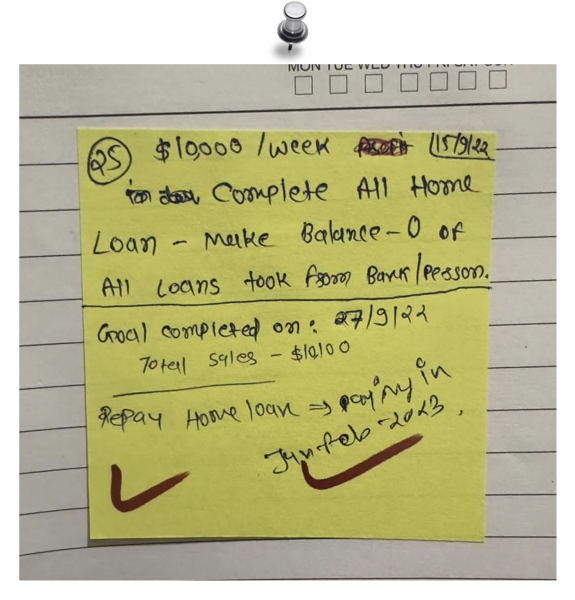 MON TUE WED THU FRI SAT SUN
25 $10,000 /week 15/9/22
Complete All Home
Loan - Make Balance - 0 of
All Loans took from Bank/Person.
Goal completed on: 27/9/22
Total Sales - $10,100
Repay Home loan ⇒ paying in
Jan feb - 2023.